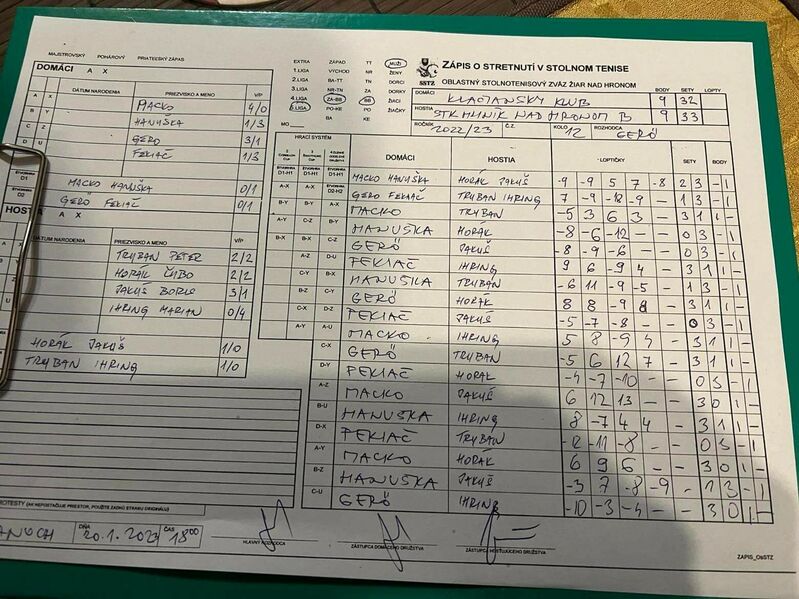 MAJSTROVSKÝ POHÁROVÝ PRIATEĽSKÝ ZÁPAS
DOMÁCI A X
DÁTUM NARODENIA PRIEZVISKO A MENO V/P
A X MACKO 4/0
B Y HANUSKA 1/3
C Z GERÖ 3/1
D U FEKIAČ 1/3
ŠTVORHRA D1 MACKO HANUSKA 0/1
GERO FEKIAČ 0/1
A X
DÁTUM NARODENIA PRIEZVISKO A MENO V/P
TRYBAN PETER 2/2
HORÁK ĽUBO 2/2
JAKUŠ BORIS 3/1
IHRING MARIAN 0/4
HORÁK JAKUŠ 1/0
TRYBAN IHRING 1/0
(AK NEPOSTAČUJE PRIESTOR, POUŽITE ZADNÚ STRANU ORIGINÁLU)
DŇA 20.1.2023 ČAS 18:00
EXTRA ZÁPAD TT MUŽI
1.LIGA VÝCHOD NR ŽENY
2.LIGA BA-TT TN DORCI
3.LIGA NR-TN ZA DORKY
4.LIGA ZA-BB BB ŽIACI
5.LIGA PO-KE PO ŽIAČKY
BA KE
MO
SSTZ
ZÁPIS O STRETNUTÍ V STOLNOM TENISE
OBLASTNÝ STOLNOTENISOVÝ ZVÄZ ŽIAR NAD HRONOM
BODY SETY LOPTY
DOMÁCI KLACIANSKY KLUB 9 32
HOSTIA STK HLINIK NAD HRONOM B 9 33
ROČNÍK 2022/23 Č.Z. KOLO 12 ROZHODCA GERÖ
HRACÍ SYSTÉM DOMÁCI HOSTIA -LOPTIČKY- SETY BODY
MACKO HANUŠKA HORÁK JAKUŠ -9 -9 5 7 -8 2 3 - 1
GERO FEKIAČ TRYBAN IHRING 7 -9 -12 -9 - 1 3 - 1
A-X B-Y MACKO TRYBAN -5 3 6 3 - 3 1 1 -
HANUSKA HORÁK -8 -6 -12 - - 0 3 - 1
GERÖ JAKUŠ -8 -9 -6 - - 0 3 - 1
FEKIAČ IHRING 9 6 -9 4 - 3 1 1 -
HANUSKA TRYBAN -6 11 -9 -5 - 1 3 - 1
GERÖ HORÁK 8 8 -9 8 - 3 1 1 -
FEKIAČ JAKUŠ -5 -7 -8 - - 0 3 - 1
MACKO IHRING 5 8 -9 4 - 3 1 1 -
C-X GERÖ TRYBAN -5 6 12 7 - 3 1 1 -
D-Y FEKIAČ HORÁK -4 -7 -10 - - 0 3 - 1
A-Z MACKO JAKUŠ 6 12 13 - - 3 0 1 -
B-U HANUSKA IHRING 8 -7 4 4 - 3 1 1 -
D-X FEKIAČ TRYBAN -12 -11 -8 - - 0 3 - 1
A-Y MACKO HORÁK 6 9 6 - - 3 0 1 -
B-Z HANUSKA JAKUŠ -3 7 -8 -9 - 1 3 - 1
C-U GERÖ IHRING -10 -3 -4 - - 3 0 1 -
HLAVNÝ ROZHODCA
ZÁSTUPCA DOMÁCEHO DRUŽSTVA
ZÁSTUPCA HOSŤUJÚCEHO DRUŽSTVA
ZAPIS_ObSTZ